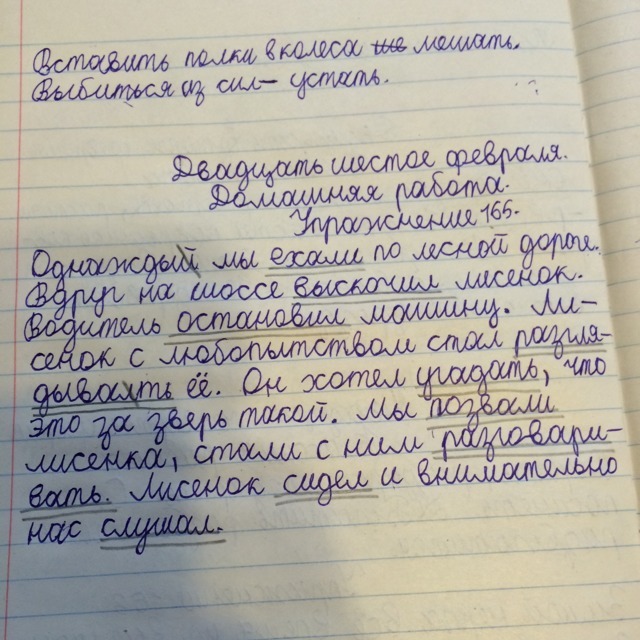 Вставить полки в колеса мешать.
Выбиться из сил - устать.
Двадцать шестое февраля.
Домашняя работа.
Упражнение 165.
Однажды мы ехали по лесной дороге.
Вдруг на шоссе выскочил лисенок.
Водитель остановил машину. Ли-
сенок с любопытством стал разгля-
дывать её. Он хотел угадать, что
это за зверь такой. Мы позвали
лисенка, стали с ним разговари-
вать. Лисенок сидел и внимательно
нас слушал.